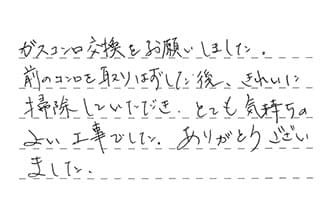 ガスコンロ交換をお願いしました。
前のコンロを取りはずした後、きれいに
掃除していただき、とても気持ちの
よい工事でした。ありがとうござい
ました。